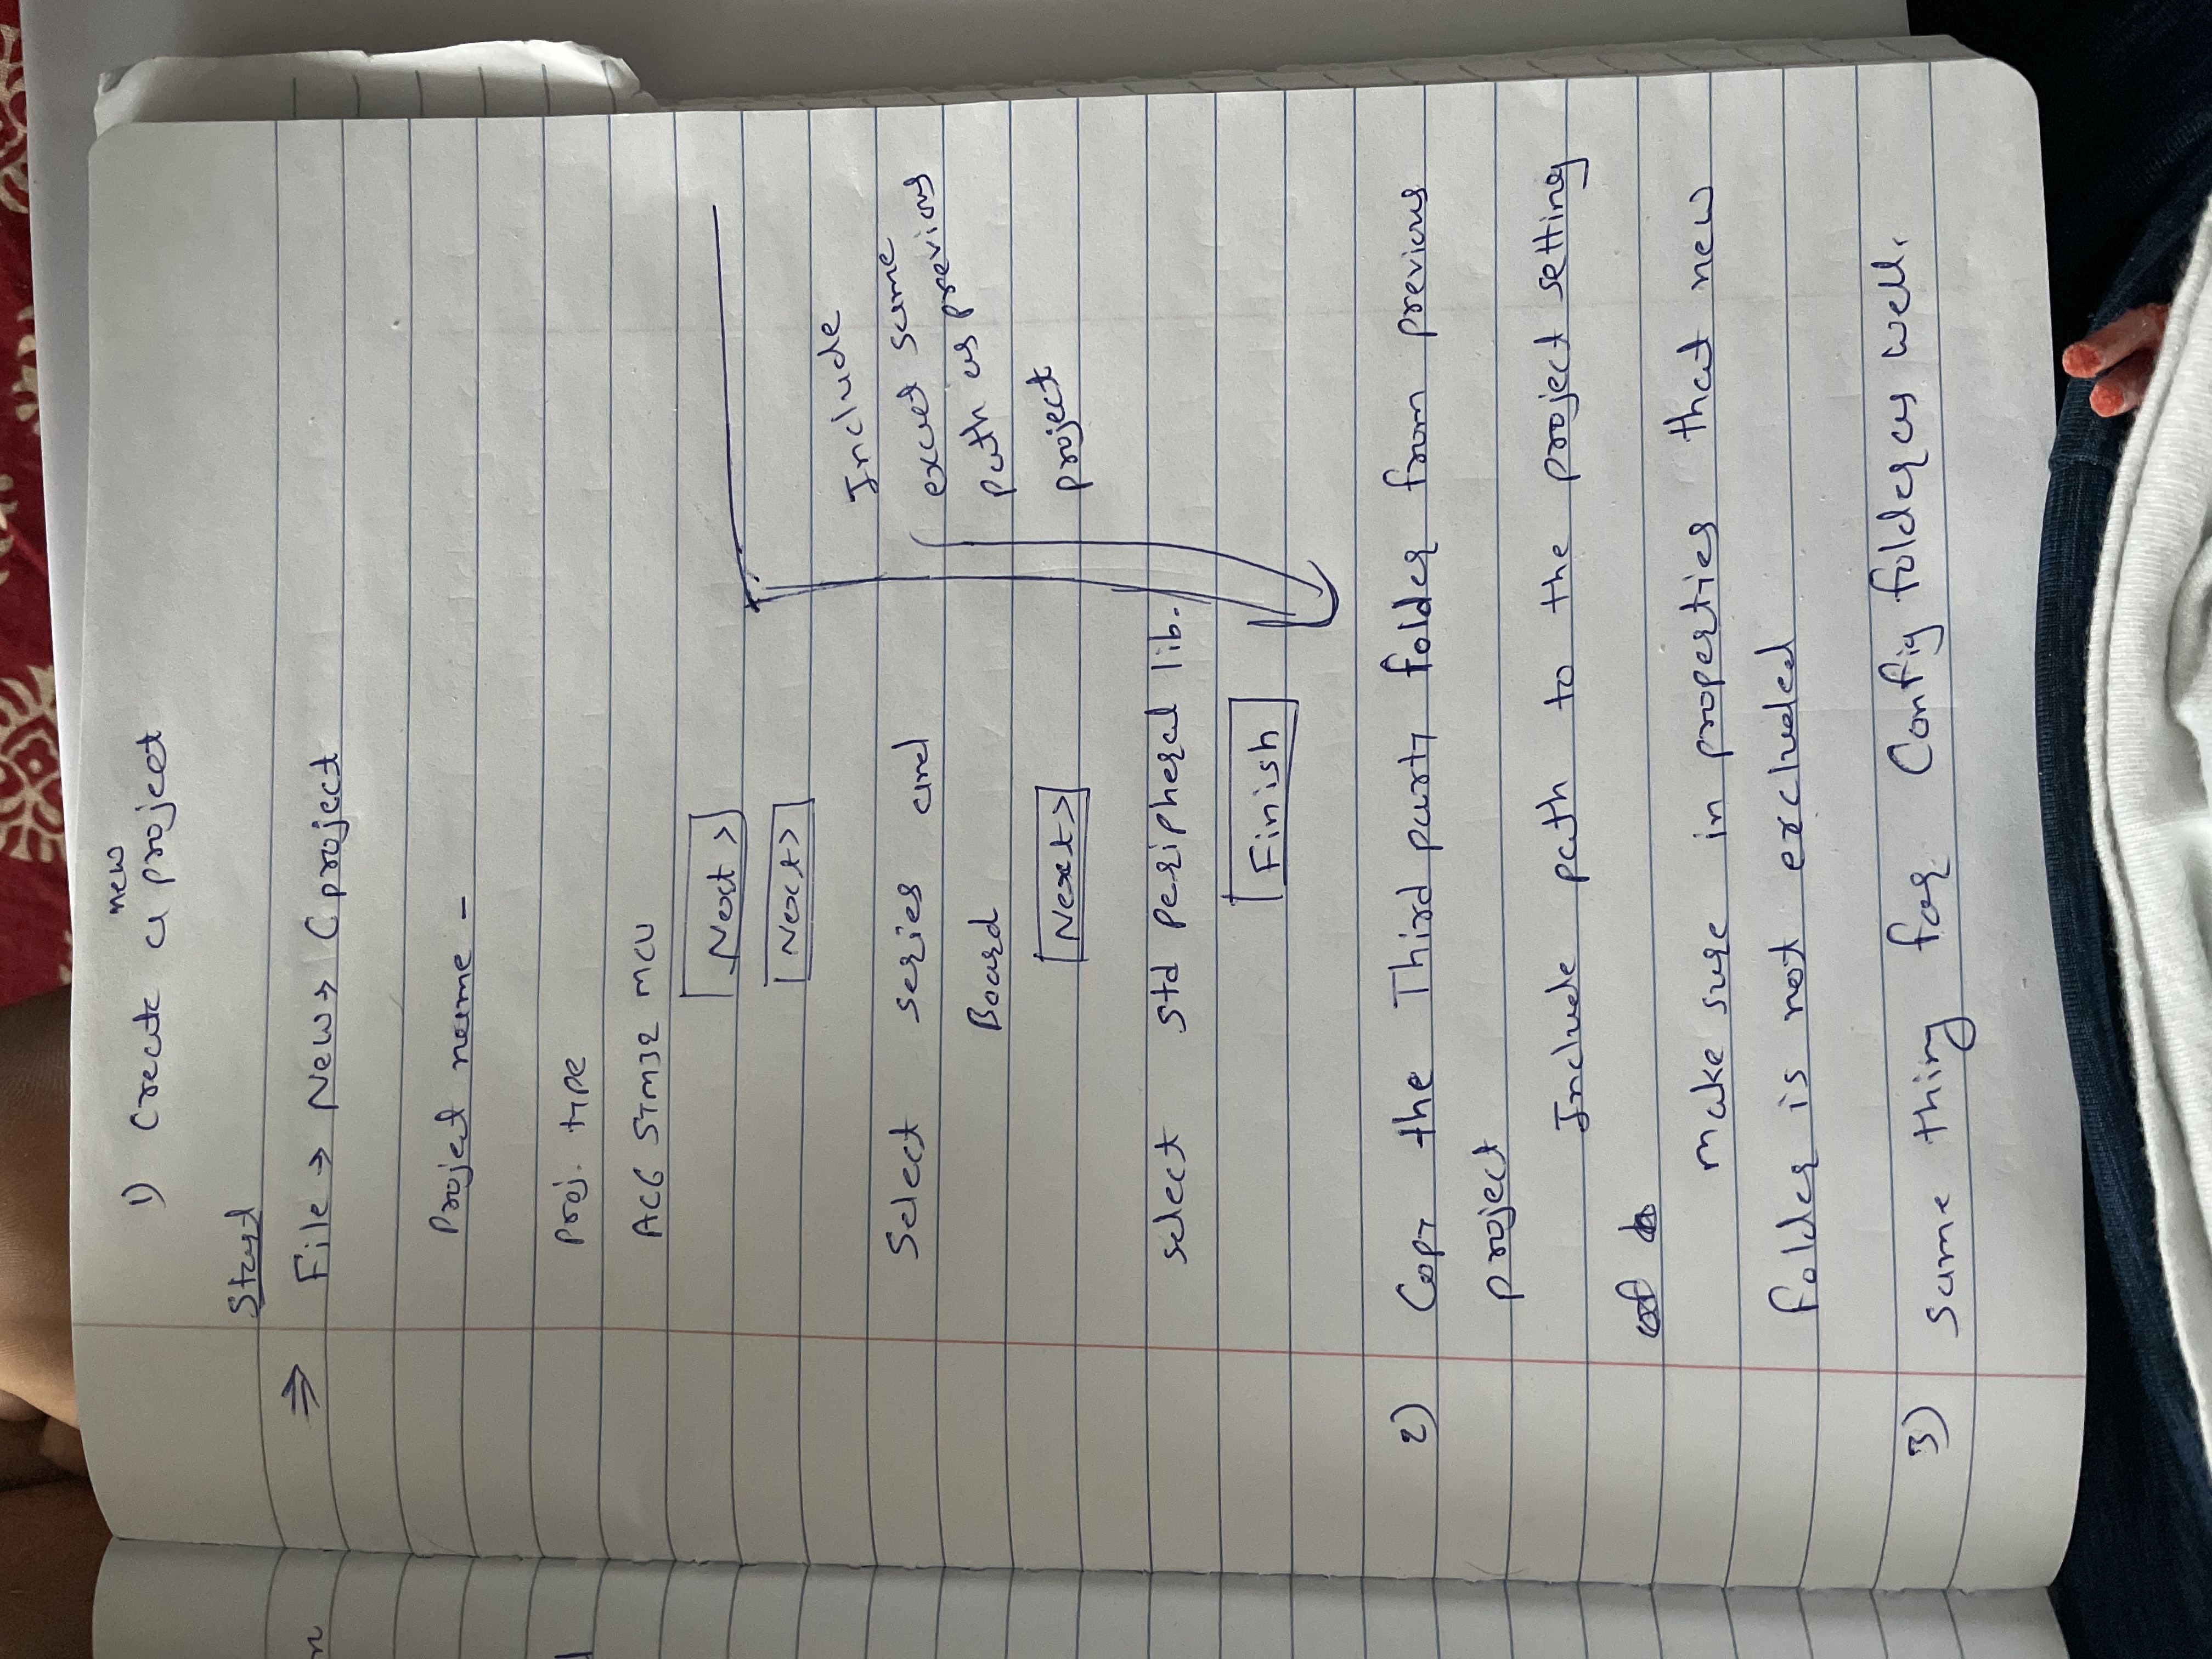 1) Create a new project
Start
⇒ File → New → C project
Project name -
Proj. type
AC6 STM32 MCU
Next >
Next >
Select series and
Board
Next >
select std peripheral lib.
Finish
Include
exact same
path as previous
project
2) Copy the Third party folder from previous
project
Include path to the project setting
make sure in properties that new
folder is not excluded
3) same thing for Config folder as well.